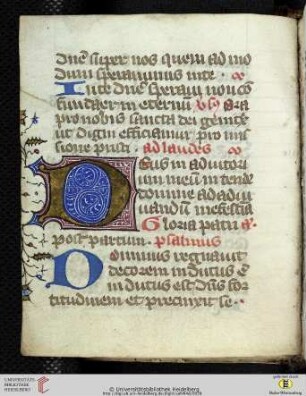 dn̄e super nos quem ad mo
dum sperauimus in te.
In te dn̄e speraui non cō
fundar in eternū v̄s ora
pro nobis sancta dei genitꝛ
ut digni efficiamur pro mis
sione xpisti. ad laudes
Deus in adiutori
um meū intende
domine ad adiu
uandū me festīa
Gloria patri a.
post partum. psalmus
Dominus regnauit
decorem indutus ē
indutus est dn̄s for
titudinem et precinxit se.
UNIVERSITÄTS-
BIBLIOTHEK
HEIDELBERG
© Universitätsbibliothek Heidelberg
gefördert durch
Baden-Württemberg